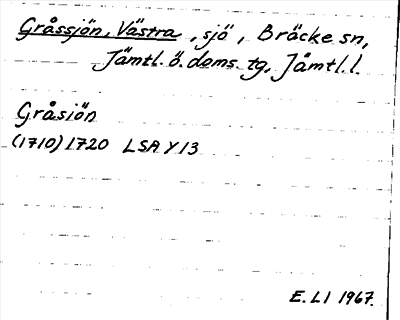 Gråssjön, Västra, sjö, Bräcke sn,
Jämtl. ö. doms tg, Jämtl. l.
Gråsiön
(1710) 1720 LSA Y 13
E. LI 1967.